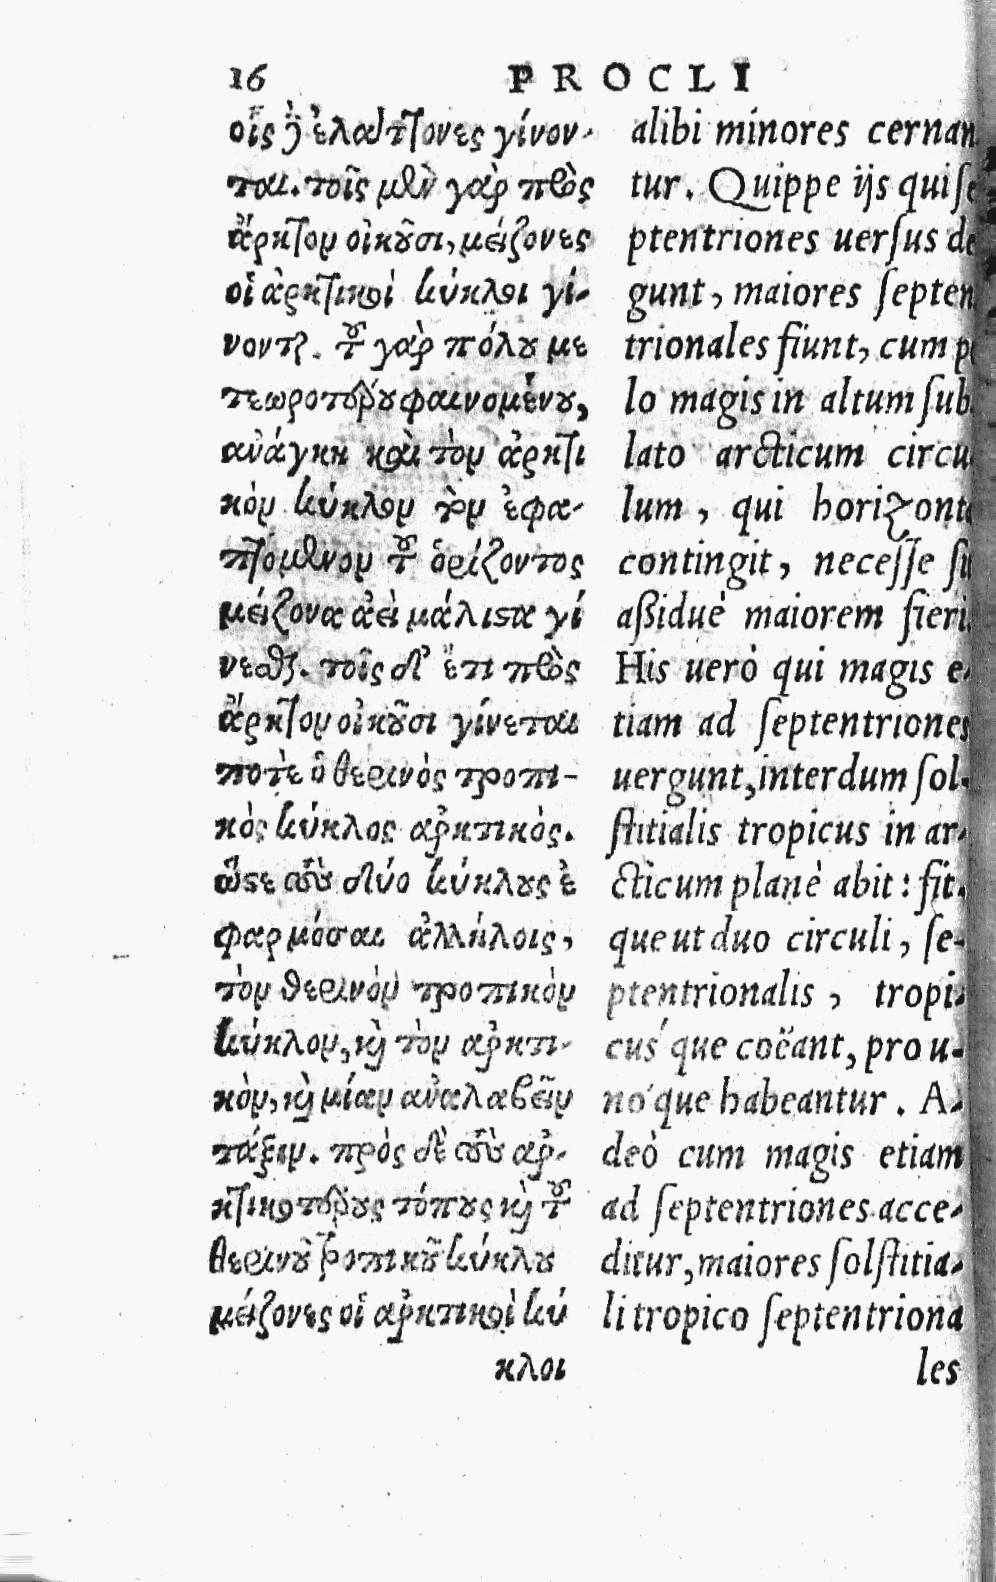 16 PROCLI
οἷς ἢ ἐλάττονες γίνον-
ται. τοῖς μὲν γὰρ πρὸς
ἄρκτον οἰκοῦσι, μείζονες
οἱ ἀρκτικοὶ κύκλοι γί-
νονται. τοῦ γὰρ πόλου με
τεωροτέρου φαινομένου,
ἀνάγκη καὶ τὸν ἀρκτι
κὸν κύκλον τὸν ἐφα-
πτόμενον τοῦ ὁρίζοντος
μείζονα ἀεὶ μάλιστα γί
νεσθαι. τοῖς δ' ἔτι πρὸς
ἄρκτον οἰκοῦσι γίνεται
ποτὲ ὁ θερινὸς τροπι-
κὸς κύκλος ἀρκτικὸς.
ὥστε τοὺς δύο κύκλους ἐ
φαρμόσαι ἀλλήλοις,
τὸν θερινὸν τροπικὸν
κύκλον, καὶ τὸν ἀρκτι-
κὸν, καὶ μίαν ἀναλαβεῖν
τάξιν. πρὸς δὲ τοὺς ἀρ-
κτικοτέρους τόπους καὶ τοῦ
θερινοῦ τροπικοῦ κύκλου
μείζονες οἱ ἀρκτικοὶ κύ
κλοι
alibi minores cernan
tur. Quippe ijs qui ſe
ptentriones uerſus de
gunt, maiores ſepten
trionales fiunt, cum po
lo magis in altum ſub
lato arcticum circu
lum, qui horizonte
contingit, neceſſe ſit
aßiduè maiorem fieri.
His uerò qui magis e-
tiam ad ſeptentriones
uergunt, interdum ſol-
ſtitialis tropicus in ar-
cticum planè abit: fit-
que ut duo circuli, ſe-
ptentrionalis, tropi-
cuś que coëant, pro u-
no´que habeantur. A-
deò cum magis etiam
ad ſeptentriones acce-
ditur, maiores ſolſtitia-
li tropico ſeptentriona
les